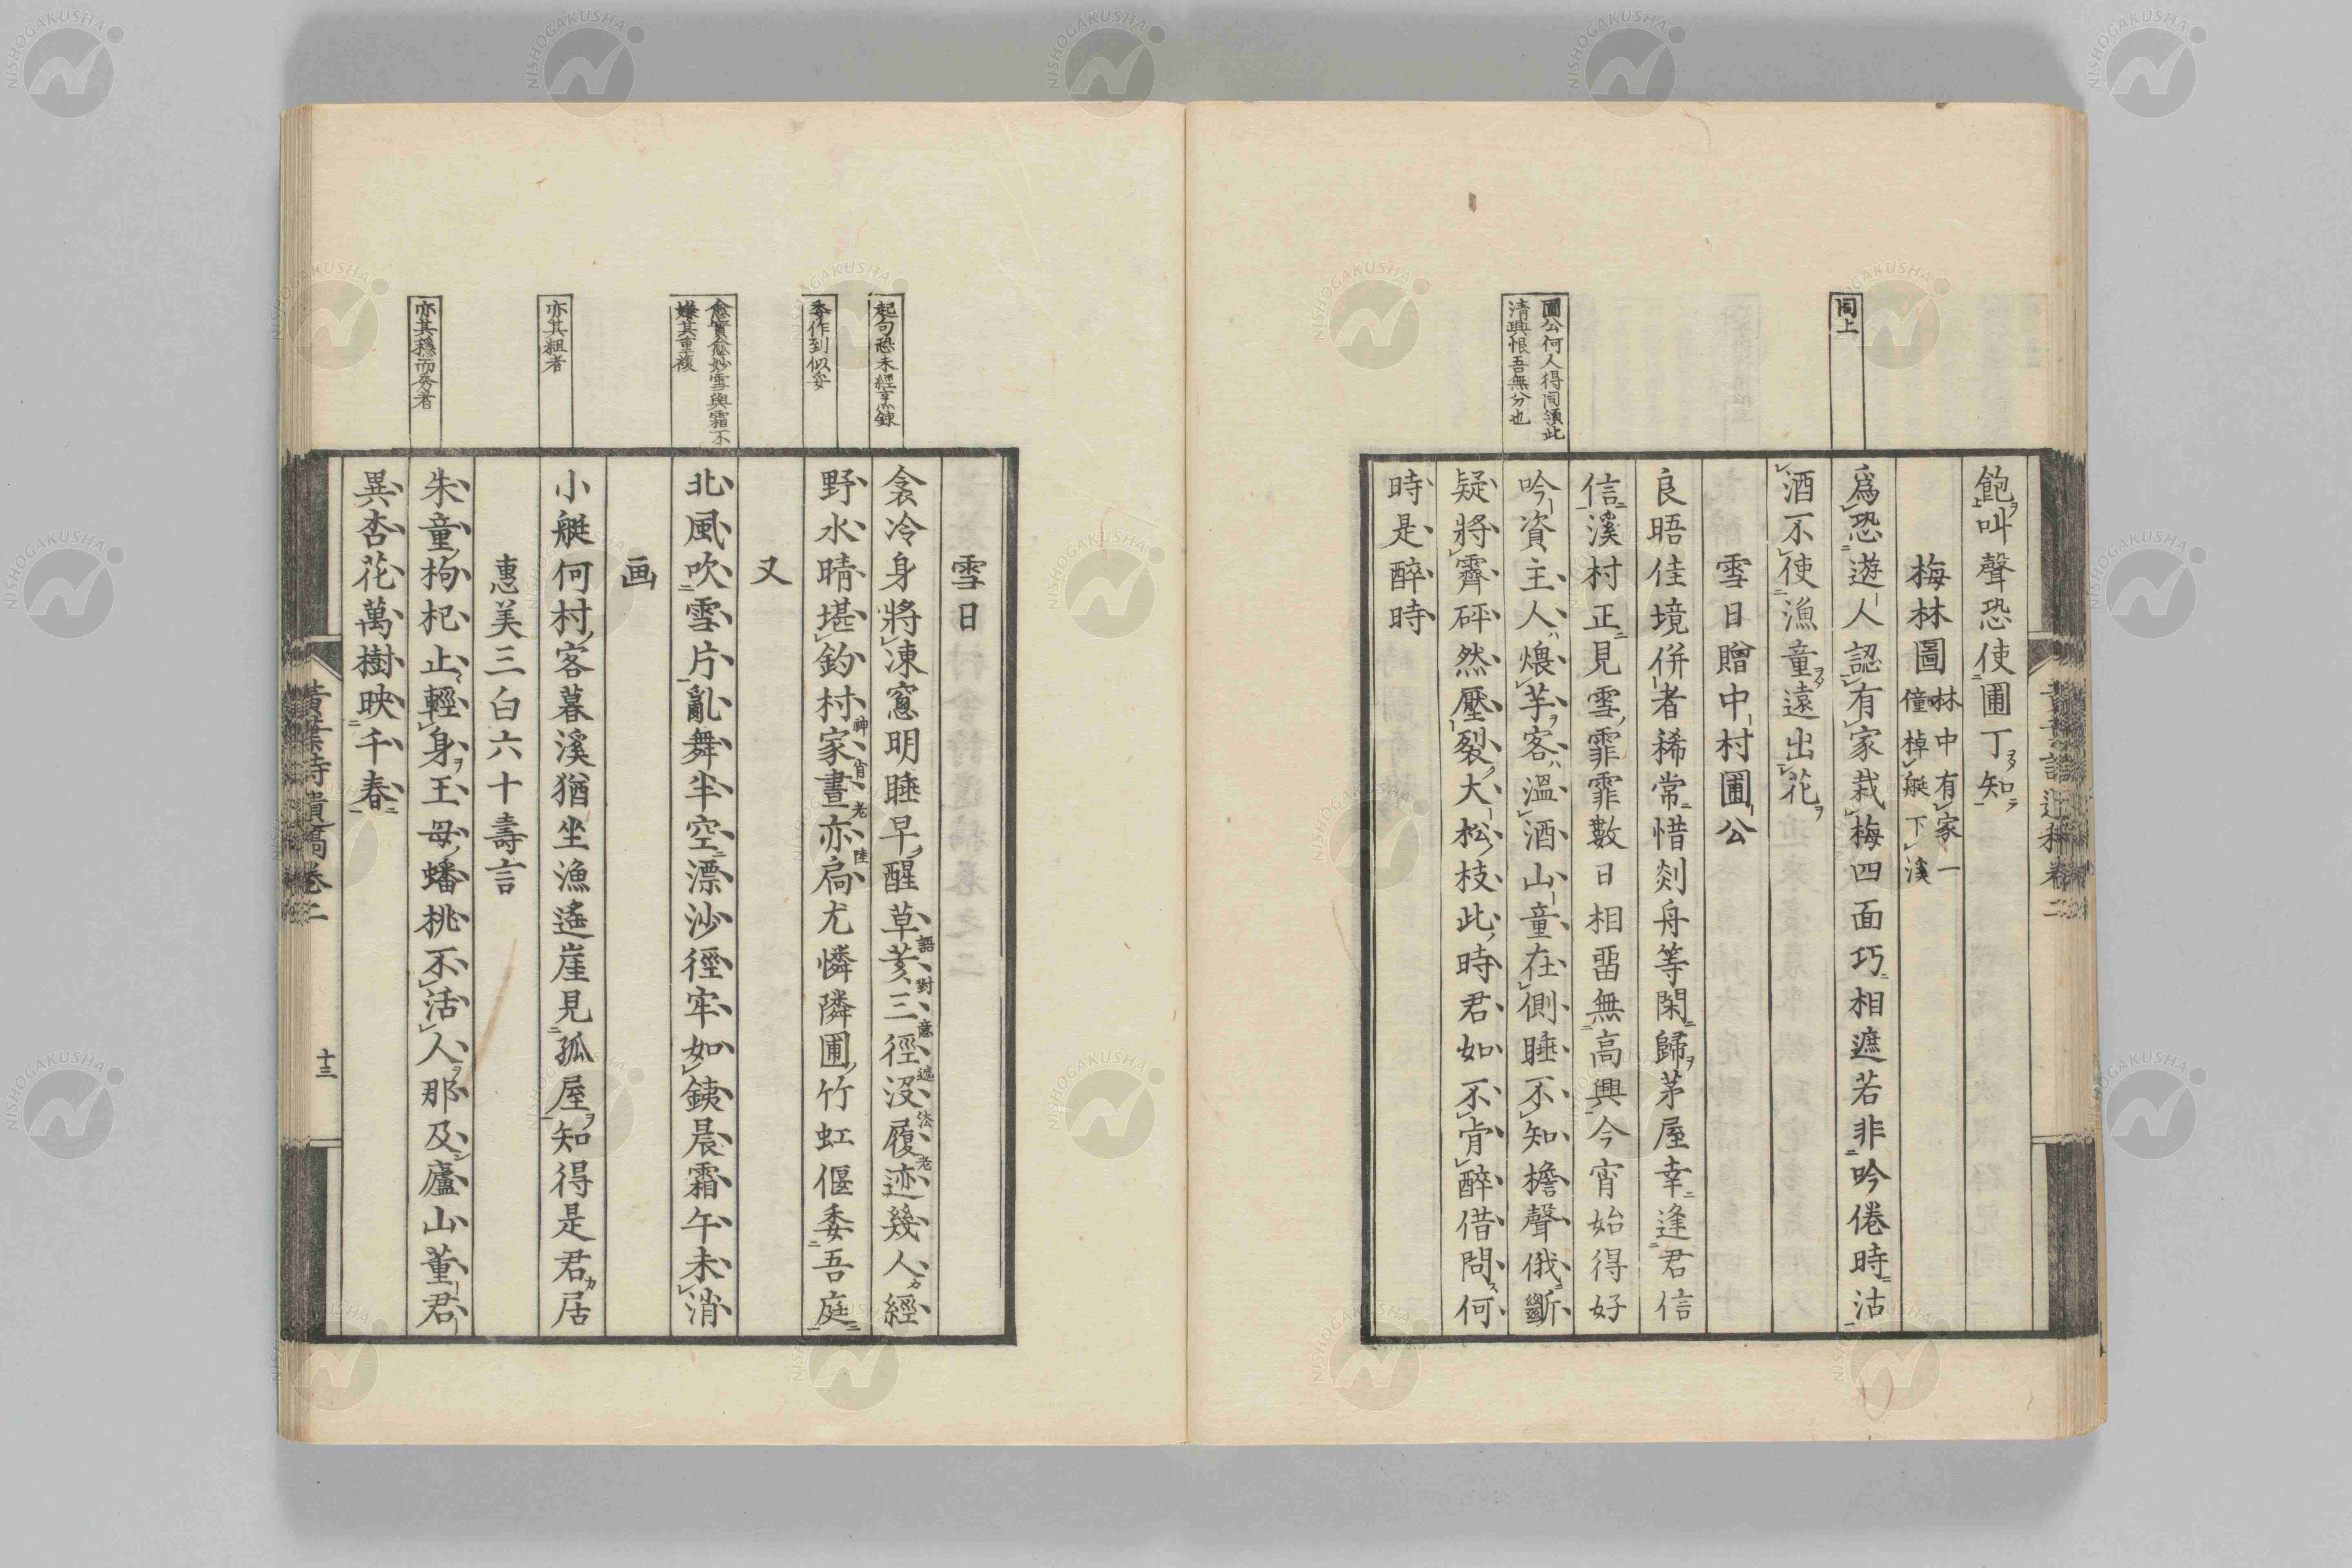 同上
圃公何人得同領此
清興恨吾無分也
飽叫聲恐使圃丁知
梅林圖 林中有家一
僮棹艇下溪
爲恐遊人認有家栽梅四面巧相遮若非吟倦時沽
酒不使漁童遠出花
雪日贈中村圃公
良晤佳境併者稀常惜剡舟等閑歸茅屋幸逢君信
信溪村正見雪霏霏數日相畱無高興今宵始得好
吟資主人煨芋客溫酒山童在側睡不知檐聲俄斷
疑將霽砰然壓裂大松枝此時君如不肯醉借問何
時是醉時
起句恐未經烹錬
委作到似妥
愈實愈妙雪與霜不
嫌其重複
亦其粗者
亦其穩而秀者
雪日
衾冷身將凍窻明睡早醒草荄三徑沒履迹幾人經
語對意遒法老
野水晴堪釣村家晝亦扃尤憐隣圃竹虹偃委吾庭
神肖老陸
又
北風吹雪片亂舞半空漂沙徑牢如銕晨霜午未消
画
小艇何村客暮溪猶坐漁遙崖見孤屋知得是君居
惠美三白六十壽言
朱童枸杞止輕身王母蟠桃不活人那及廬山董君
異杏花萬樹映千春
黃葉詩遺稿卷二
十三